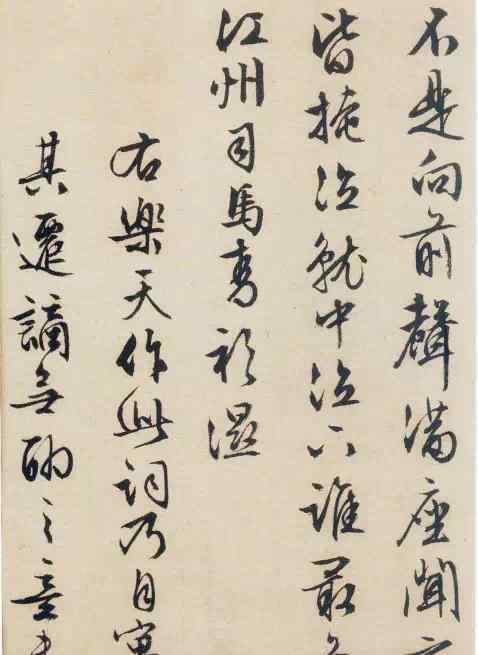 不是向前聲滿座聞
皆掩泣就中泣下誰最
江州司馬青衫濕
右樂天作此詞乃自寓
其遷謫無聊之意